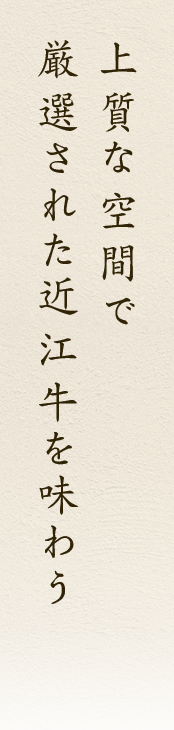 上質な空間で
厳選された近江牛を味わう